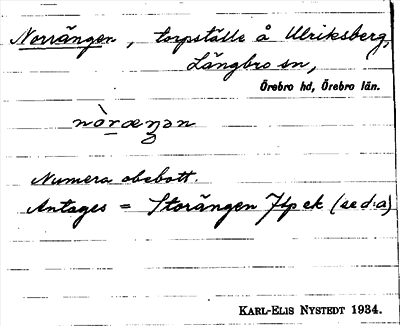 Norrängen, torpställe å Ulriksberg,
Längbro sn,
Örebro hd, Örebro län.
nòræŋən
Numera obebott.
Antages = Storängen Jfp ek (se d:a)
KARL-ELIS NYSTEDT 1934.